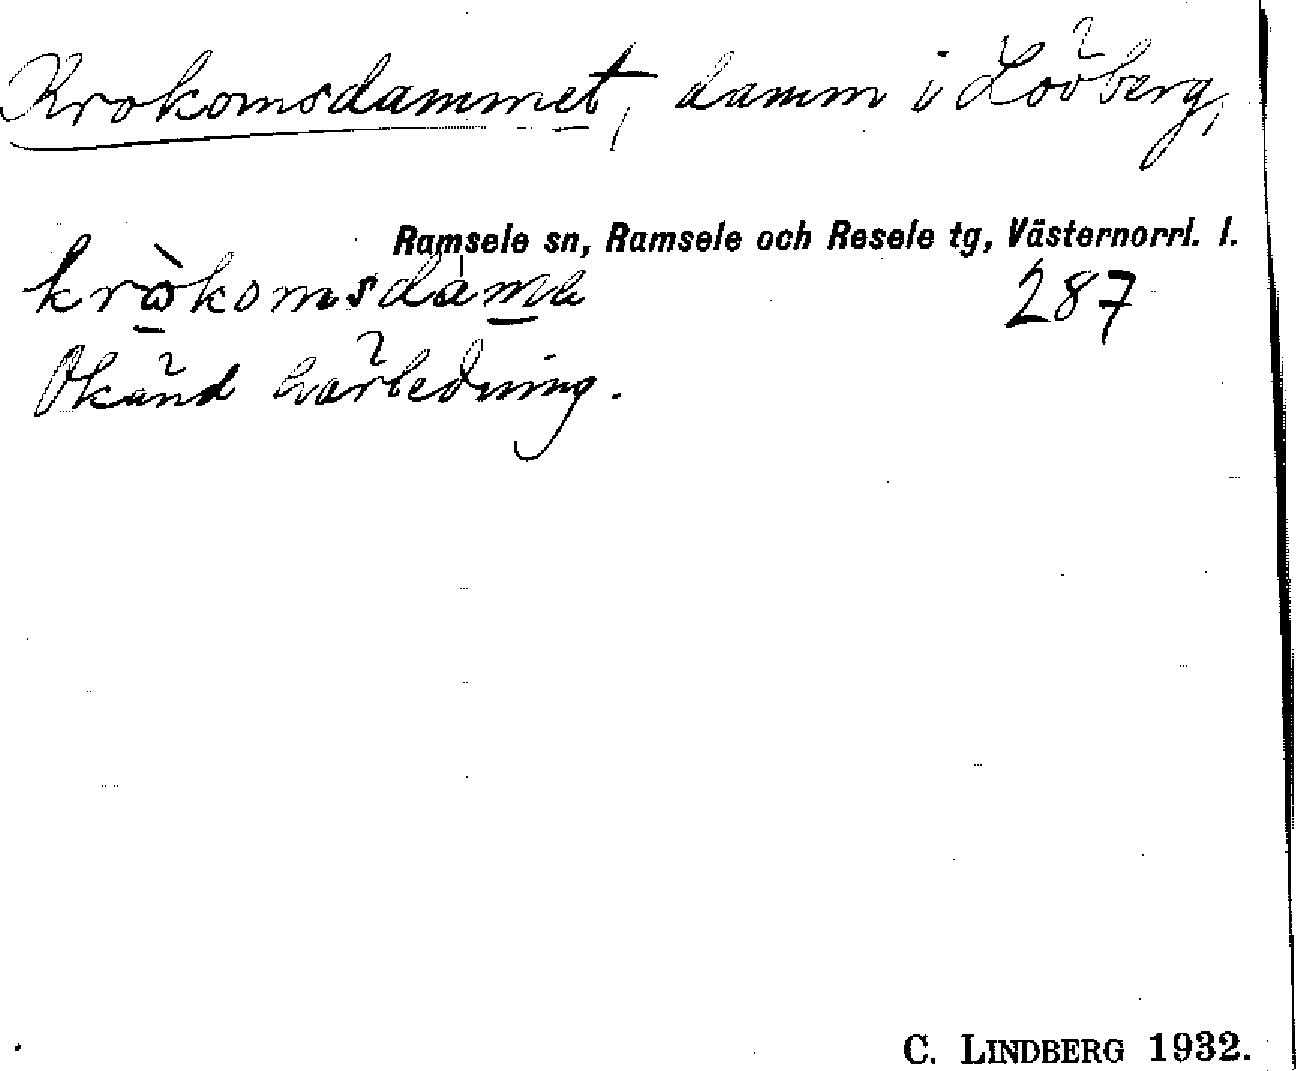 Krokomsdammet, damm i Lövberg,
Ramsele sn, Ramsele och Resele tg, Västernorrl. l.
287
Okänd härledning.
C. LINDBERG 1932.